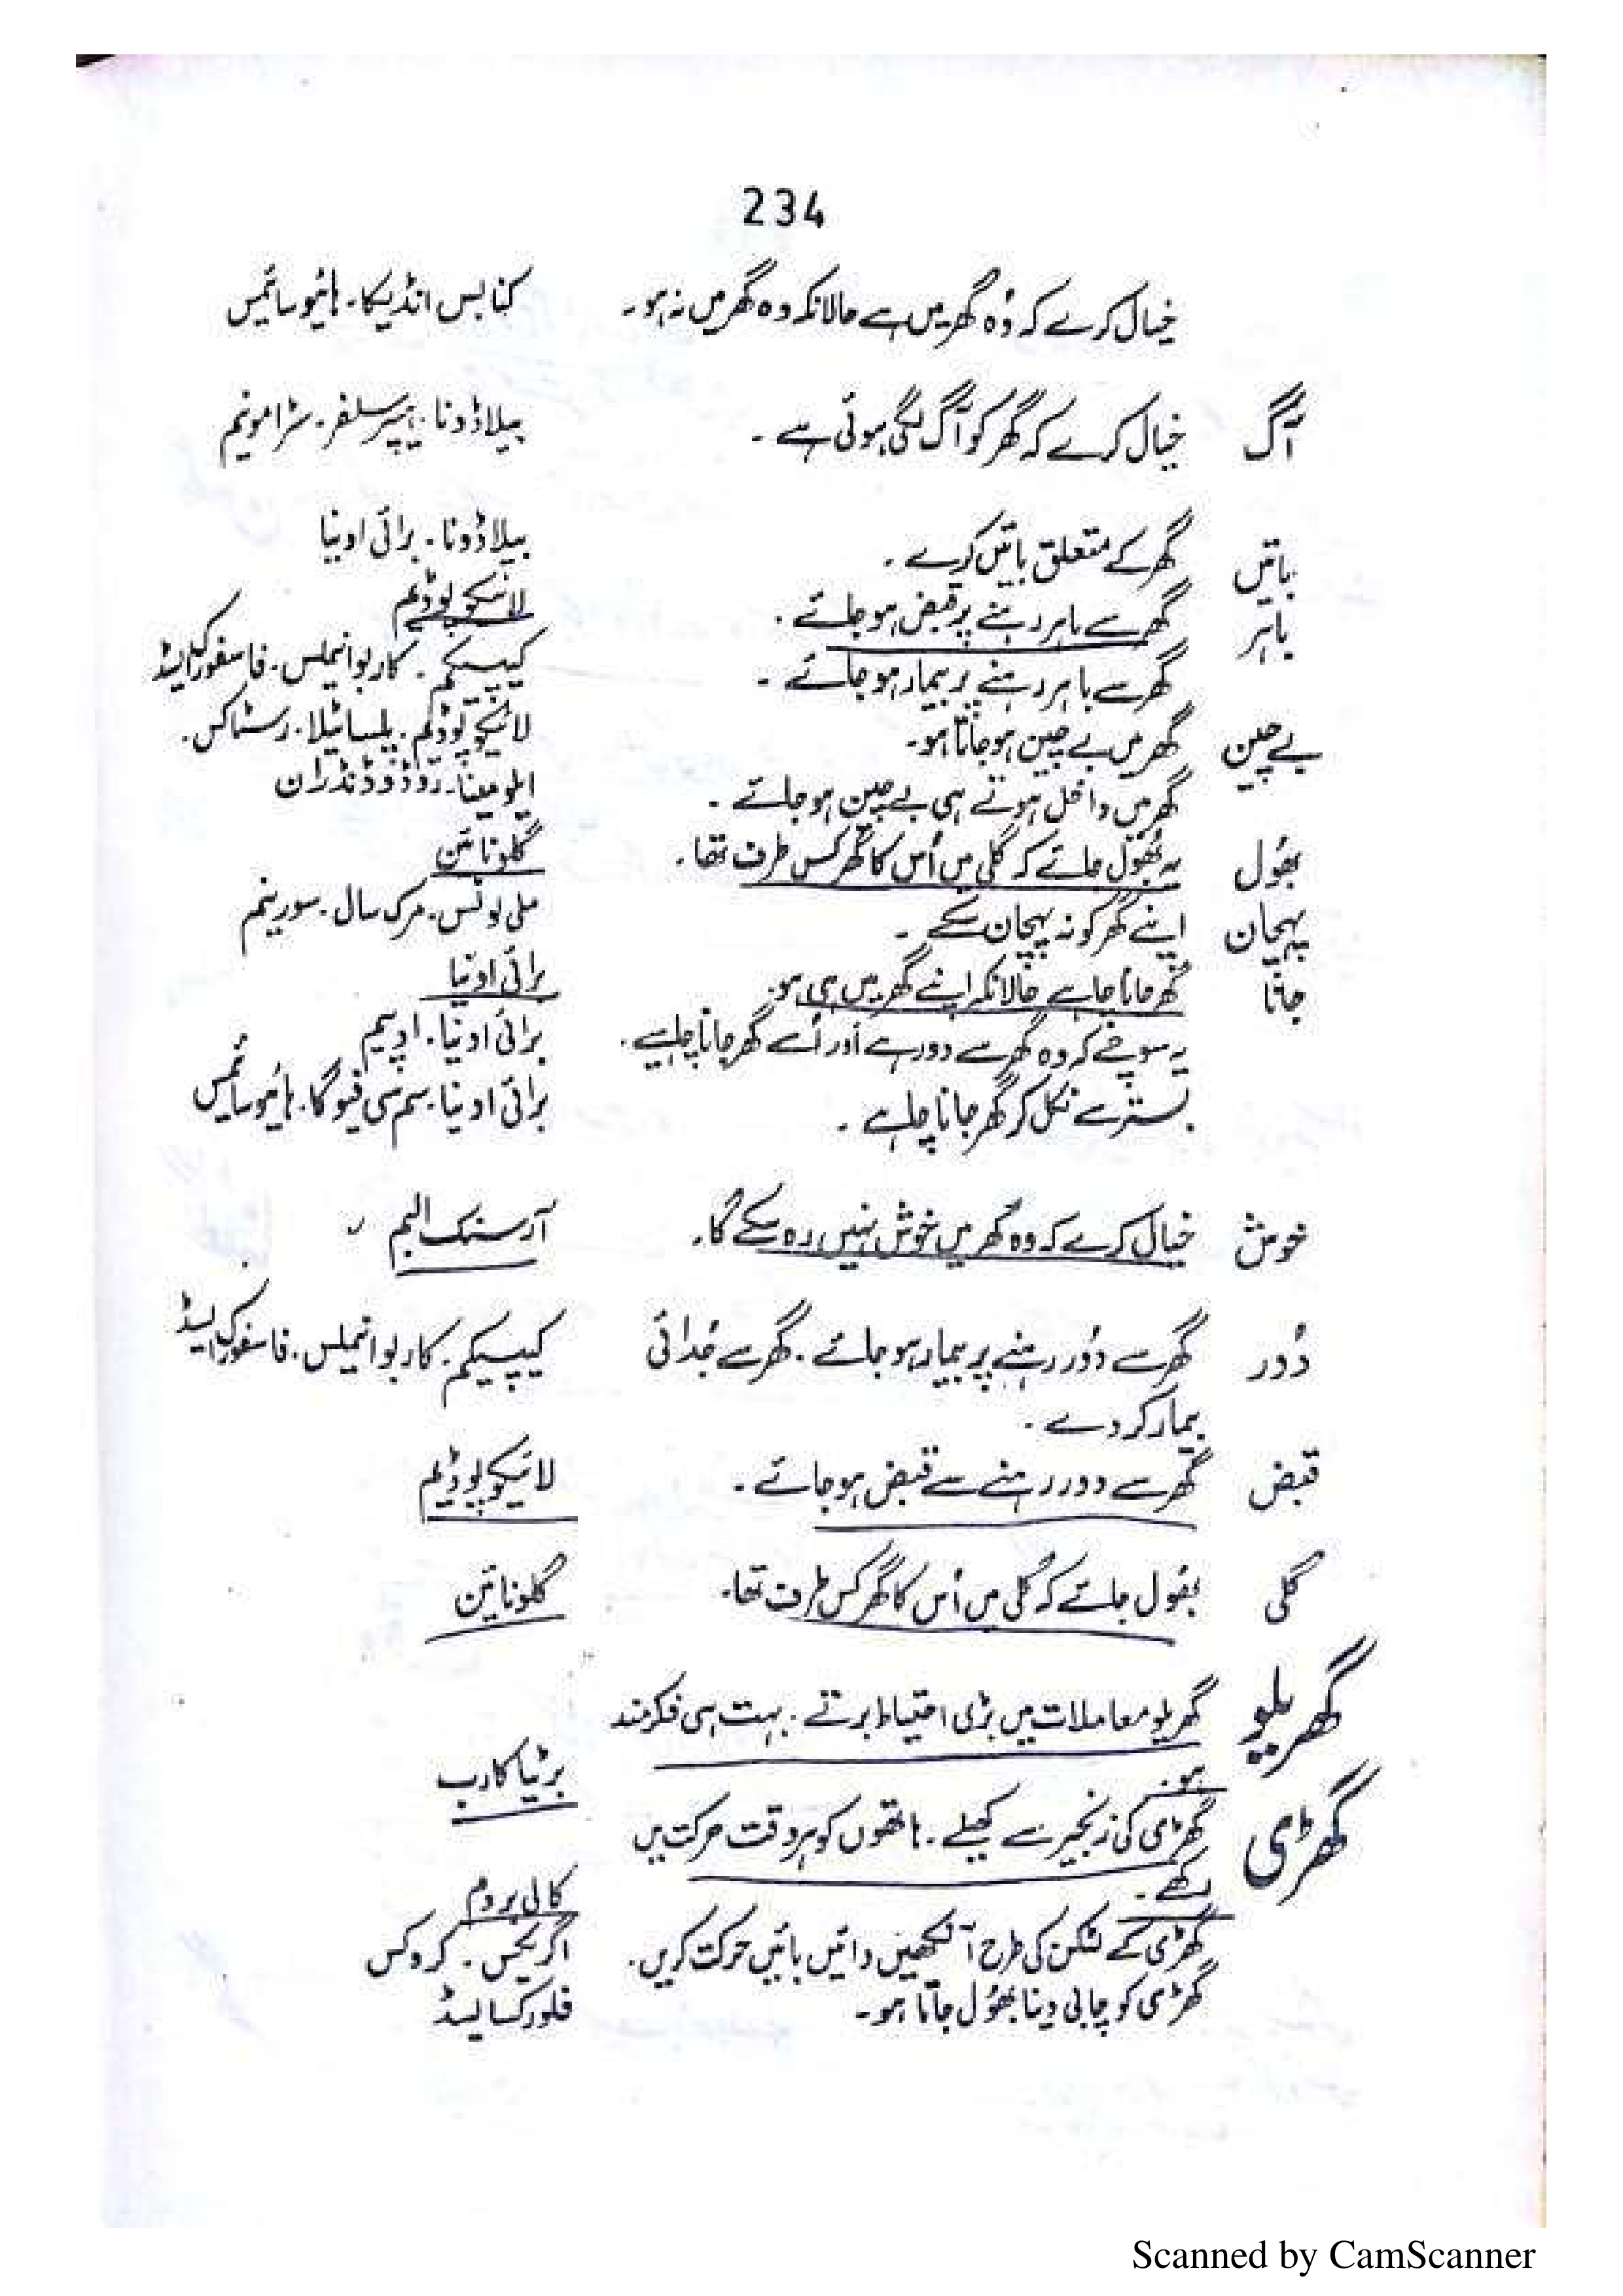 234
خیال کرے کہ وُہ گھر میں ہے حالانکہ وہ گھر میں نہ ہو۔ کنابس انڈیکا۔ ہائیوسائمس
آگ خیال کرے کہ گھر کو آگ لگی ہوئی ہے۔ بیلاڈونا۔ ہیپر سلفر۔ سٹرامونیم
باتیں گھر کے متعلق باتیں کرے۔ بیلاڈونا۔ برائی اونیا
باہر گھر سے باہر رہنے پر قبض ہو جائے۔ لائیکوپوڈیم
گھر سے باہر رہنے پر بیمار ہو جائے۔ کیپسیکم۔ کاربوانیملس۔ فاسفورک ایسڈ
بے چین گھر میں بے چین ہو جاتا ہو۔ لائیکوپوڈیم۔ پلساٹیلا۔ رسٹاکس۔
گھر میں داخل ہوتے ہی بے چین ہو جائے۔ ایلومینا۔ روڈوڈنڈران
بھُول یہ بھُول جائے کہ گلی میں اُس کا گھر کس طرف تھا۔ گلونائن
پہچان اپنے گھر کو نہ پہچان سکے۔ ملی لوٹس۔ مرک سال۔ سورینم
جانا گھر جانا چاہے حالانکہ اپنے گھر میں ہی ہو۔ برائی اونیا
یہ سوچے کہ وہ گھر سے دور ہے اور اُسے گھر جانا چاہیے۔ برائی اونیا۔ اوپیم
بستر سے نکل کر گھر جانا چاہے۔ برائی اونیا۔ سمی سی فیوگا۔ ہائیوسائمس
خوش خیال کرے کہ وہ گھر میں خوش نہیں رہ سکے گا۔ آرسنک البم
دُور گھر سے دُور رہنے پر بیمار ہو جائے۔ گھر سے جُدائی کیپسیکم۔ کاربوانیملس۔ فاسفورک ایسڈ
بیمار کر دے۔
قبض گھر سے دور رہنے سے قبض ہو جائے۔ لائیکوپوڈیم
گلی بھُول جائے کہ گلی میں اُس کا گھر کس طرف تھا۔ گلونائن
گھریلو گھریلو معاملات میں بڑی احتیاط برتے۔ بہت ہی فکرمند
ہو۔ برٹیا کارب
گھڑی گھڑی کی زنجیر سے کھیلے۔ ہاتھوں کو ہر وقت حرکت میں
رکھے۔ کالی بروم
گھڑی کے لٹکن کی طرح آنکھیں دائیں بائیں حرکت کریں۔ اگریکس۔ کروکس
گھڑی کو چابی دینا بھُول جاتا ہو۔ فلورک ایسڈ
Scanned by CamScanner